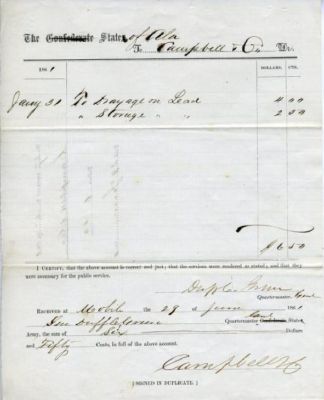 The Confederate States of Ala
To Campbell & Co Dr.
186 1 DOLLARS. CTS.
Jany 31 To Drayage on Lead 4 00
" Storage " " 2 50
$6 50
I CERTIFY, that the above account is correct and just; that the services were rendered as stated; and that they
were necessary for the public service.
Duffie Green
Quartermaster,
RECEIVED AT Mobile the 29 of June 186 1
Duffie Green Quartermaster Confederate States
Army, the sum of Six Dollars
and Fifty Cents, in full of the above account.
Campbell & Co
[SIGNED IN DUPLICATE.]